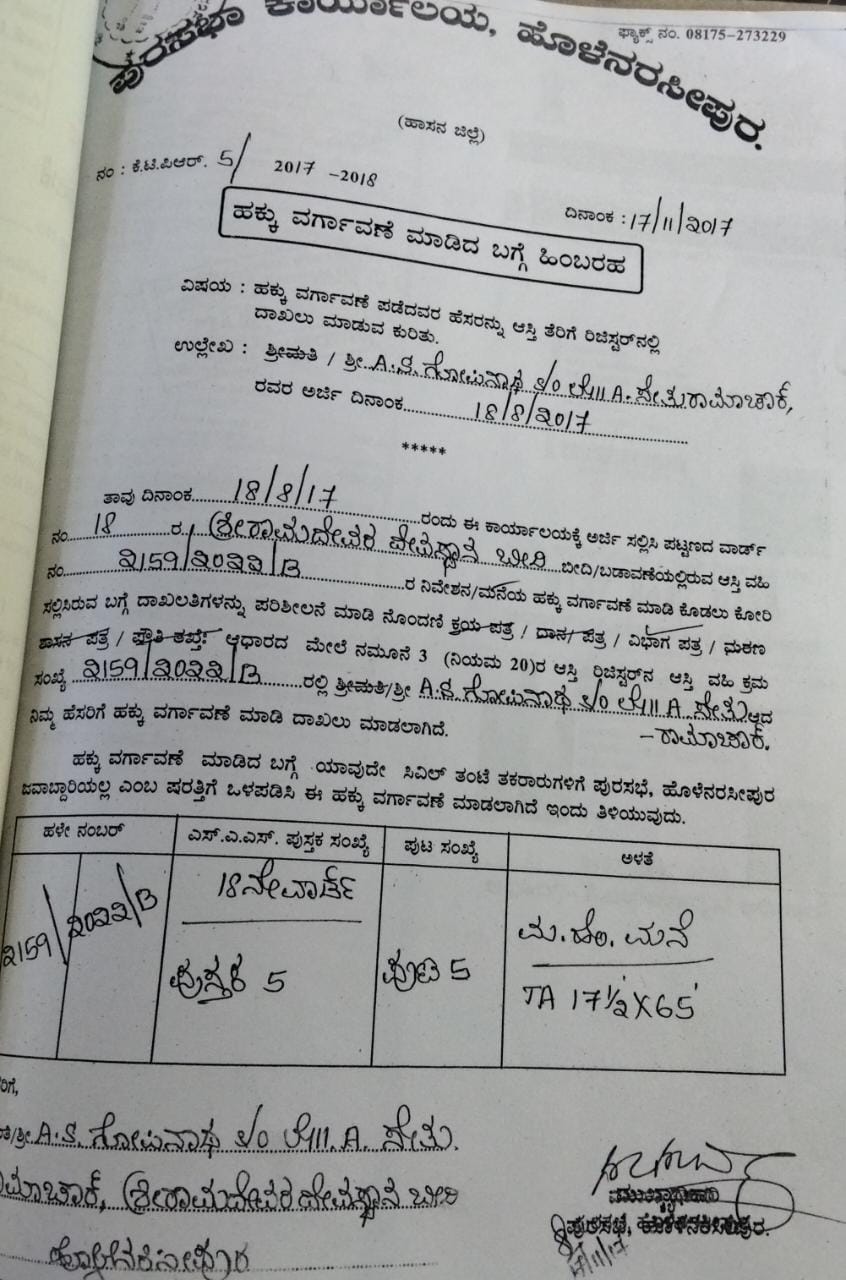 ಫ್ಯಾಕ್ಸ್ ನಂ. 08175-273229
ಪುರಸಭಾ ಕಾರ್ಯಾಲಯ, ಹೊಳೆನರಸೀಪುರ.
(ಹಾಸನ ಜಿಲ್ಲೆ)
ನಂ : ಕೆ.ಟಿ.ಪಿಆರ್. 5/ 2017 -2018
ದಿನಾಂಕ : 17/11/2017
ಹಕ್ಕು ವರ್ಗಾವಣೆ ಮಾಡಿದ ಬಗ್ಗೆ ಹಿಂಬರಹ
ವಿಷಯ : ಹಕ್ಕು ವರ್ಗಾವಣೆ ಪಡೆದವರ ಹೆಸರನ್ನು ಆಸ್ತಿ ತೆರಿಗೆ ರಿಜಿಸ್ಟರ್‌ನಲ್ಲಿ
ದಾಖಲು ಮಾಡುವ ಕುರಿತು.
ಉಲ್ಲೇಖ : ಶ್ರೀಮತಿ / ಶ್ರೀ A.S. ಗೋಪಿನಾಥ s/o ಲೇ॥ A. ಸೇತುರಾಮಾಚಾರ್,
ರವರ ಅರ್ಜಿ ದಿನಾಂಕ 18/8/೨೦17
*****
ತಾವು ದಿನಾಂಕ 18/8/17 ರಂದು ಈ ಕಾರ್ಯಾಲಯಕ್ಕೆ ಅರ್ಜಿ ಸಲ್ಲಿಸಿ ಪಟ್ಟಣದ ವಾರ್ಡ್
ನಂ 18 ರ ಶ್ರೀರಾಮದೇವರ ದೇವಸ್ಥಾನ ಬೀದಿ ಬೀದಿ/ಬಡಾವಣೆಯಲ್ಲಿರುವ ಆಸ್ತಿ ವಹಿ
ನಂ ೨159/೨0೨೨/B ರ ನಿವೇಶನ/ಮನೆಯ ಹಕ್ಕು ವರ್ಗಾವಣೆ ಮಾಡಿ ಕೊಡಲು ಕೋರಿ
ಸಲ್ಲಿಸಿರುವ ಬಗ್ಗೆ ದಾಖಲತಿಗಳನ್ನು ಪರಿಶೀಲನೆ ಮಾಡಿ ನೊಂದಣಿ ಕ್ರಯ ಪತ್ರ / ದಾನ ಪತ್ರ / ವಿಭಾಗ ಪತ್ರ / ಮರಣ
ಶಾಸನ ಪತ್ರ / ಪೌತಿ ಖಾತೆ ಆಧಾರದ ಮೇಲೆ ನಮೂನೆ 3 (ನಿಯಮ 20)ರ ಆಸ್ತಿ ರಿಜಿಸ್ಟರ್‌ನ ಆಸ್ತಿ ವಹಿ ಕ್ರಮ
ಸಂಖ್ಯೆ ೨159/೨0೨೨/B ರಲ್ಲಿ ಶ್ರೀಮತಿ/ಶ್ರೀ A.S. ಗೋಪಿನಾಥ s/o ಲೇ॥ A ಸೇತು ಆದ
-ರಾಮಾಚಾರ್.
ನಿಮ್ಮ ಹೆಸರಿಗೆ ಹಕ್ಕು ವರ್ಗಾವಣೆ ಮಾಡಿ ದಾಖಲು ಮಾಡಲಾಗಿದೆ.
ಹಕ್ಕು ವರ್ಗಾವಣೆ ಮಾಡಿದ ಬಗ್ಗೆ ಯಾವುದೇ ಸಿವಿಲ್ ತಂಟೆ ತಕರಾರುಗಳಿಗೆ ಪುರಸಭೆ, ಹೊಳೆನರಸೀಪುರ
ಜವಾಬ್ದಾರಿಯಲ್ಲ ಎಂಬ ಷರತ್ತಿಗೆ ಒಳಪಡಿಸಿ ಈ ಹಕ್ಕು ವರ್ಗಾವಣೆ ಮಾಡಲಾಗಿದೆ ಇಂದು ತಿಳಿಯುವುದು.
ಹಳೇ ನಂಬರ್ ಎಸ್.ಎ.ಎಸ್. ಪುಸ್ತಕ ಸಂಖ್ಯೆ ಪುಟ ಸಂಖ್ಯೆ ಅಳತೆ
೨159/೨0೨೨/B
18ನೇವಾರ್ಡ್
ಪುಸ್ತಕ 5
ಪುಟ 5
ಮ.ಹೆಂ. ಮನೆ
TA 17½ X 65'
ರಿಗೆ,
/ಶ್ರೀ A.S. ಗೋಪಿನಾಥ s/o ಲೇ॥ A. ಸೇತು.
ಮಾಚಾರ್, ಶ್ರೀರಾಮದೇವರ ದೇವಸ್ಥಾನ ಬೀದಿ
ಹೊಳೆನರಸೀಪುರ
ಮುಖ್ಯಾಧಿಕಾರಿ
ಪುರಸಭೆ, ಹೊಳೆನರಸೀಪುರ.
17/11/17